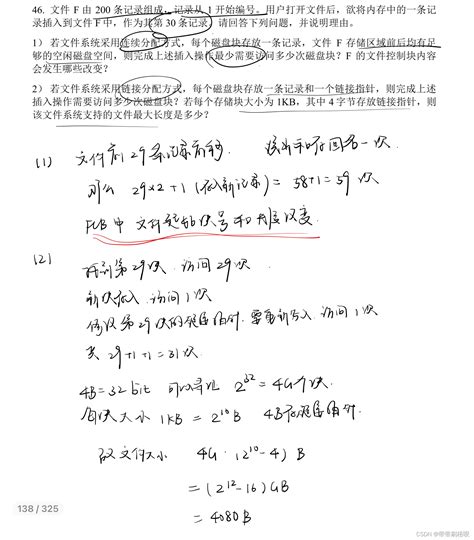 46. 文件 F 由 200 条记录组成，记录从 1 开始编号。用户打开文件后，欲将内存中的一条记
录插入到文件 F 中，作为其第 30 条记录。请回答下列问题，并说明理由。
1） 若文件系统采用连续分配方式，每个磁盘块存放一条记录，文件 F 存储区域前后均有足
够的空闲磁盘空间，则完成上述插入操作最少需要访问多少次磁盘块？F 的文件控制块内容
会发生哪些改变？
2） 若文件系统采用链接分配方式，每个磁盘块存放一条记录和一个链接指针，则完成上述
插入操作需要访问多少次磁盘块？若每个存储块大小为 1KB，其中 4 字节存放链接指针，则
该文件系统支持的文件最大长度是多少？
(1) 文件前29条记录前移 存回各一次
那么 29×2+1 (存入新记录) = 58+1 = 59 次
FCB中 文件起始块号和长度改变
(2) 找到第29块 访问29次
新块存入 访问1次
修改第29块的链接指针 需重新写入 访问1次
共 29+1+1 = 31次
4B=32bit 可以寻址 2^32 = 4G个块
每块大小 1KB = 2^10 B 4B存链接指针
故文件大小 4G·(2^10-4) B
= (2^12-16) GB
= 4080 B
138 / 325
CSDN